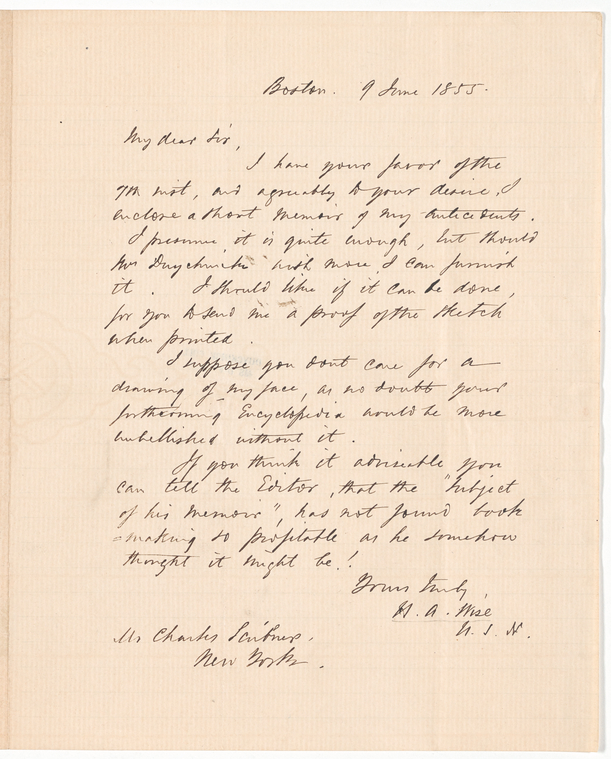 Boston. 9 June 1855.
My dear Sir,
I have your favor of the
7th inst, and agreeably to your desire, I
enclose a short memoir of my antecedents.
I presume it is quite enough, but should
Duyckinck wish more I can furnish
it. I should like if it can be done,
for you to send me a proof of the sketch
when printed.
I suppose you dont care for a
drawing of my face, as no doubt your
forthcoming Encyclopedia would be more
embellished without it.
If you think it adviseable you
can tell the Editor, that the "Subject
of his memoir", has not found book
=making so profitable as he somehow
thought it might be!
Yours truly,
H. A. Wise
U. S. N.
Mr Charles Scribner,
New York.